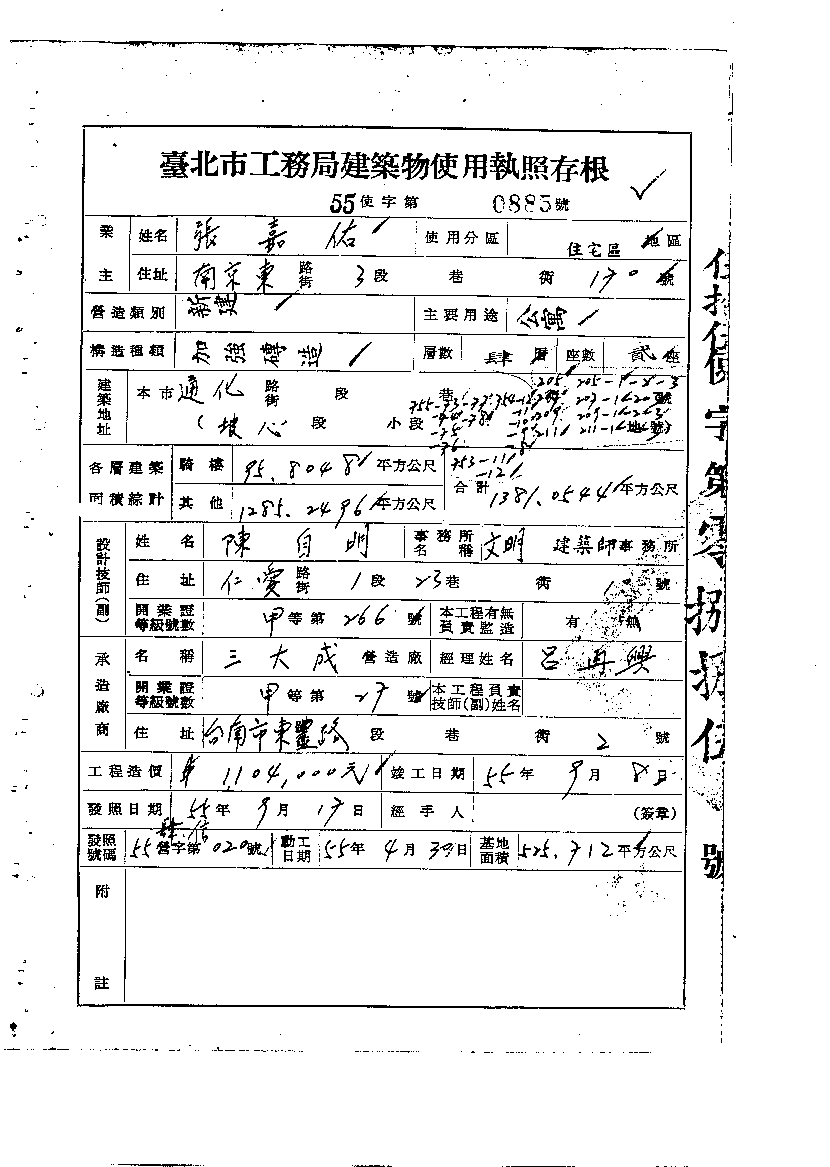 臺北市工務局建築物使用執照存根
55使字第 0885號
業主 姓名 張嘉佑 使用分區 住宅區 地區
住址 南京東 路街 3段 巷 街 170 號
營造類別 新建 主要用途 公寓
構造種類 加強磚造 層數 肆層 座數 貳座
建築地址 本市 通化 路街 段 巷
(坡心 段 小段
各層建築面積綜計 騎樓 95.8048 平方公尺
其他 1285.2496 平方公尺 合計 1381.0544 平方公尺
設計技師(副) 姓名 陳自明 事務所名稱 文明 建築師事務所
住址 仁愛 路街 1段 23巷 街 號
開業證等級號數 甲等第 266 號 本工程有無負責監造 有 無
承造廠商 名稱 三大成 營造廠 經理姓名 呂再興
開業證等級號數 甲等第 27 號 本工程負責技師(副)姓名
住址 台南市東豐路 段 巷 街 2 號
工程造價 1,104,000元 竣工日期 55年9月8日
發照日期 55年9月17日 經手人 (簽章)
發照號碼 55營字第020號 動工日期 55年4月30日 基地面積 525.712平方公尺
附註
字第零捌捌伍號